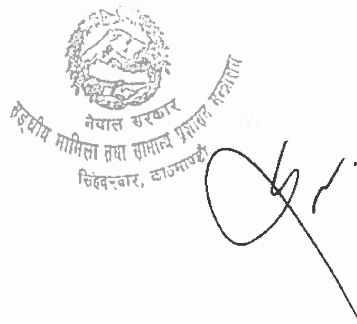 नेपाल सरकार
सङ्घीय मामिला तथा सामान्य प्रशासन मन्त्रालय
सिंहदरवार, काठमाण्डौ